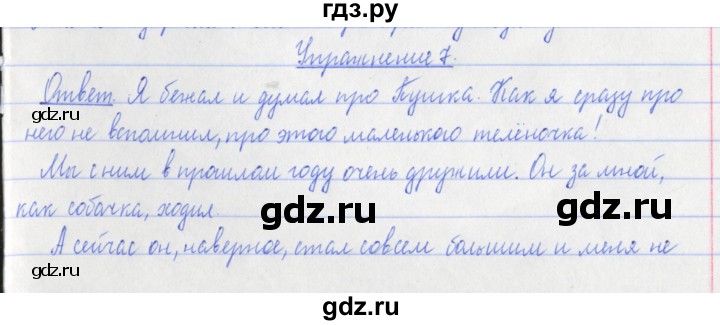 гдз.ру
Упражнение 7.
Ответ. Я бежал и думал про Пушка. Как я сразу про
него не вспомнил, про этого маленького телёночка!
Мы с ним в прошлом году очень дружили. Он за мной,
как собачка, ходил.
gdz.ru
gdz.ru
gdz.ru
А сейчас он, наверное, стал совсем большим и меня не
gdz.ru
gdz.ru
gdz.ru